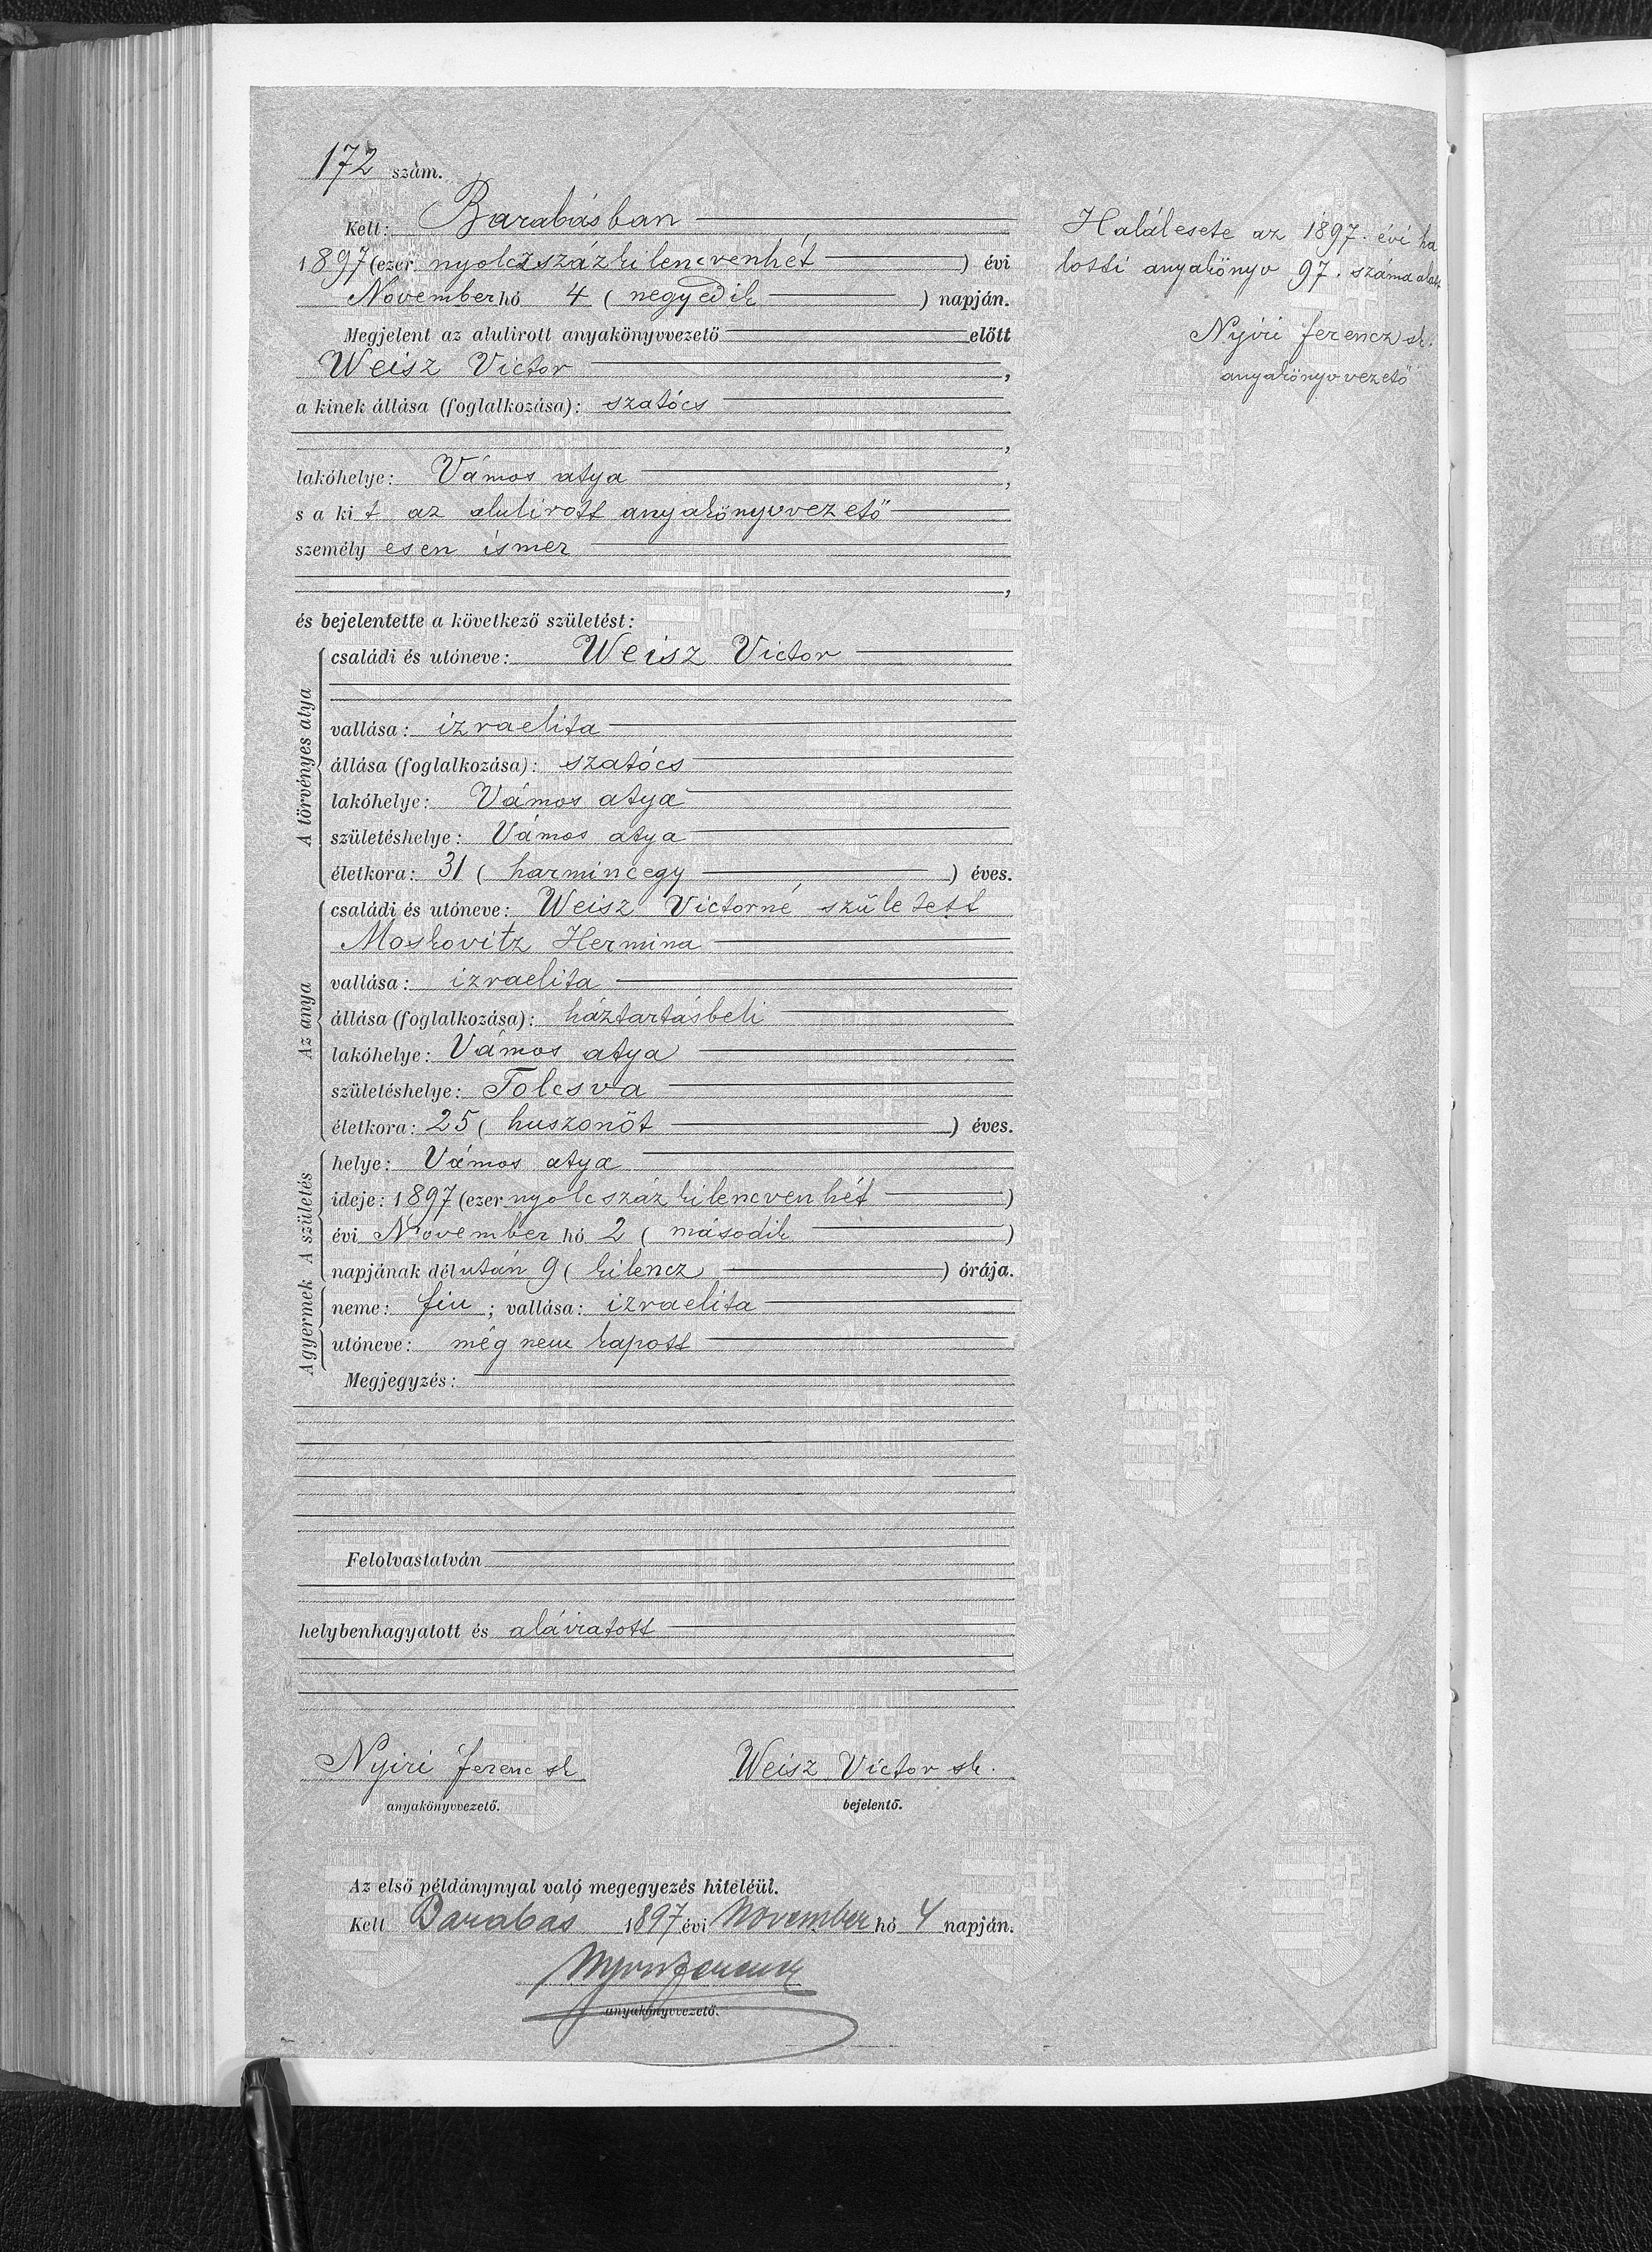 172 szám.
Kelt: Barabásban
1897 (ezer nyolczszázkilenczvenhét) évi
November hó 4 (negyedik) napján.
Megjelent az alulirott anyakönyvvezető előtt
Weisz Victor,
a kinek állása (foglalkozása): szatócs
,
lakóhelye: Vámos atya,
s a kit az alulirott anyakönyvvezető
személyesen ismer
,
és bejelentette a következő születést:
A törvényes atya
családi és utóneve: Weisz Victor
vallása: izraelita
állása (foglalkozása): szatócs
lakóhelye: Vámos atya
születéshelye: Vámos atya
életkora: 31 (harmincegy) éves.
Az anya
családi és utóneve: Weisz Victorné született
Moskovitz Hermina
vallása: izraelita
állása (foglalkozása): háztartásbeli
lakóhelye: Vámos atya
születéshelye: Tolcsva
életkora: 25 (huszonöt) éves.
A születés
helye: Vámos atya
ideje: 1897 (ezer nyolcszáz kilencvenhét)
évi November hó 2 (második)
napjának délután 9 (kilencz) órája.
A gyermek
neme: fiu; vallása: izraelita
utóneve: még nem kapott
Megjegyzés:
Felolvastatván
helybenhagyatott és aláiratott
Nyiri Ferenc sk
anyakönyvvezető.
Weisz Victor sk.
bejelentő.
Az első példánynyal való megegyezés hiteléül.
Kelt Barabás 1897 évi November hó 4 napján.
Nyiri Ferencz
anyakönyvvezető.
Halálesete az 1897. évi ha
lotti anyakönyv 97. száma alatt
Nyiri Ferencz sk.
anyakönyvvezető